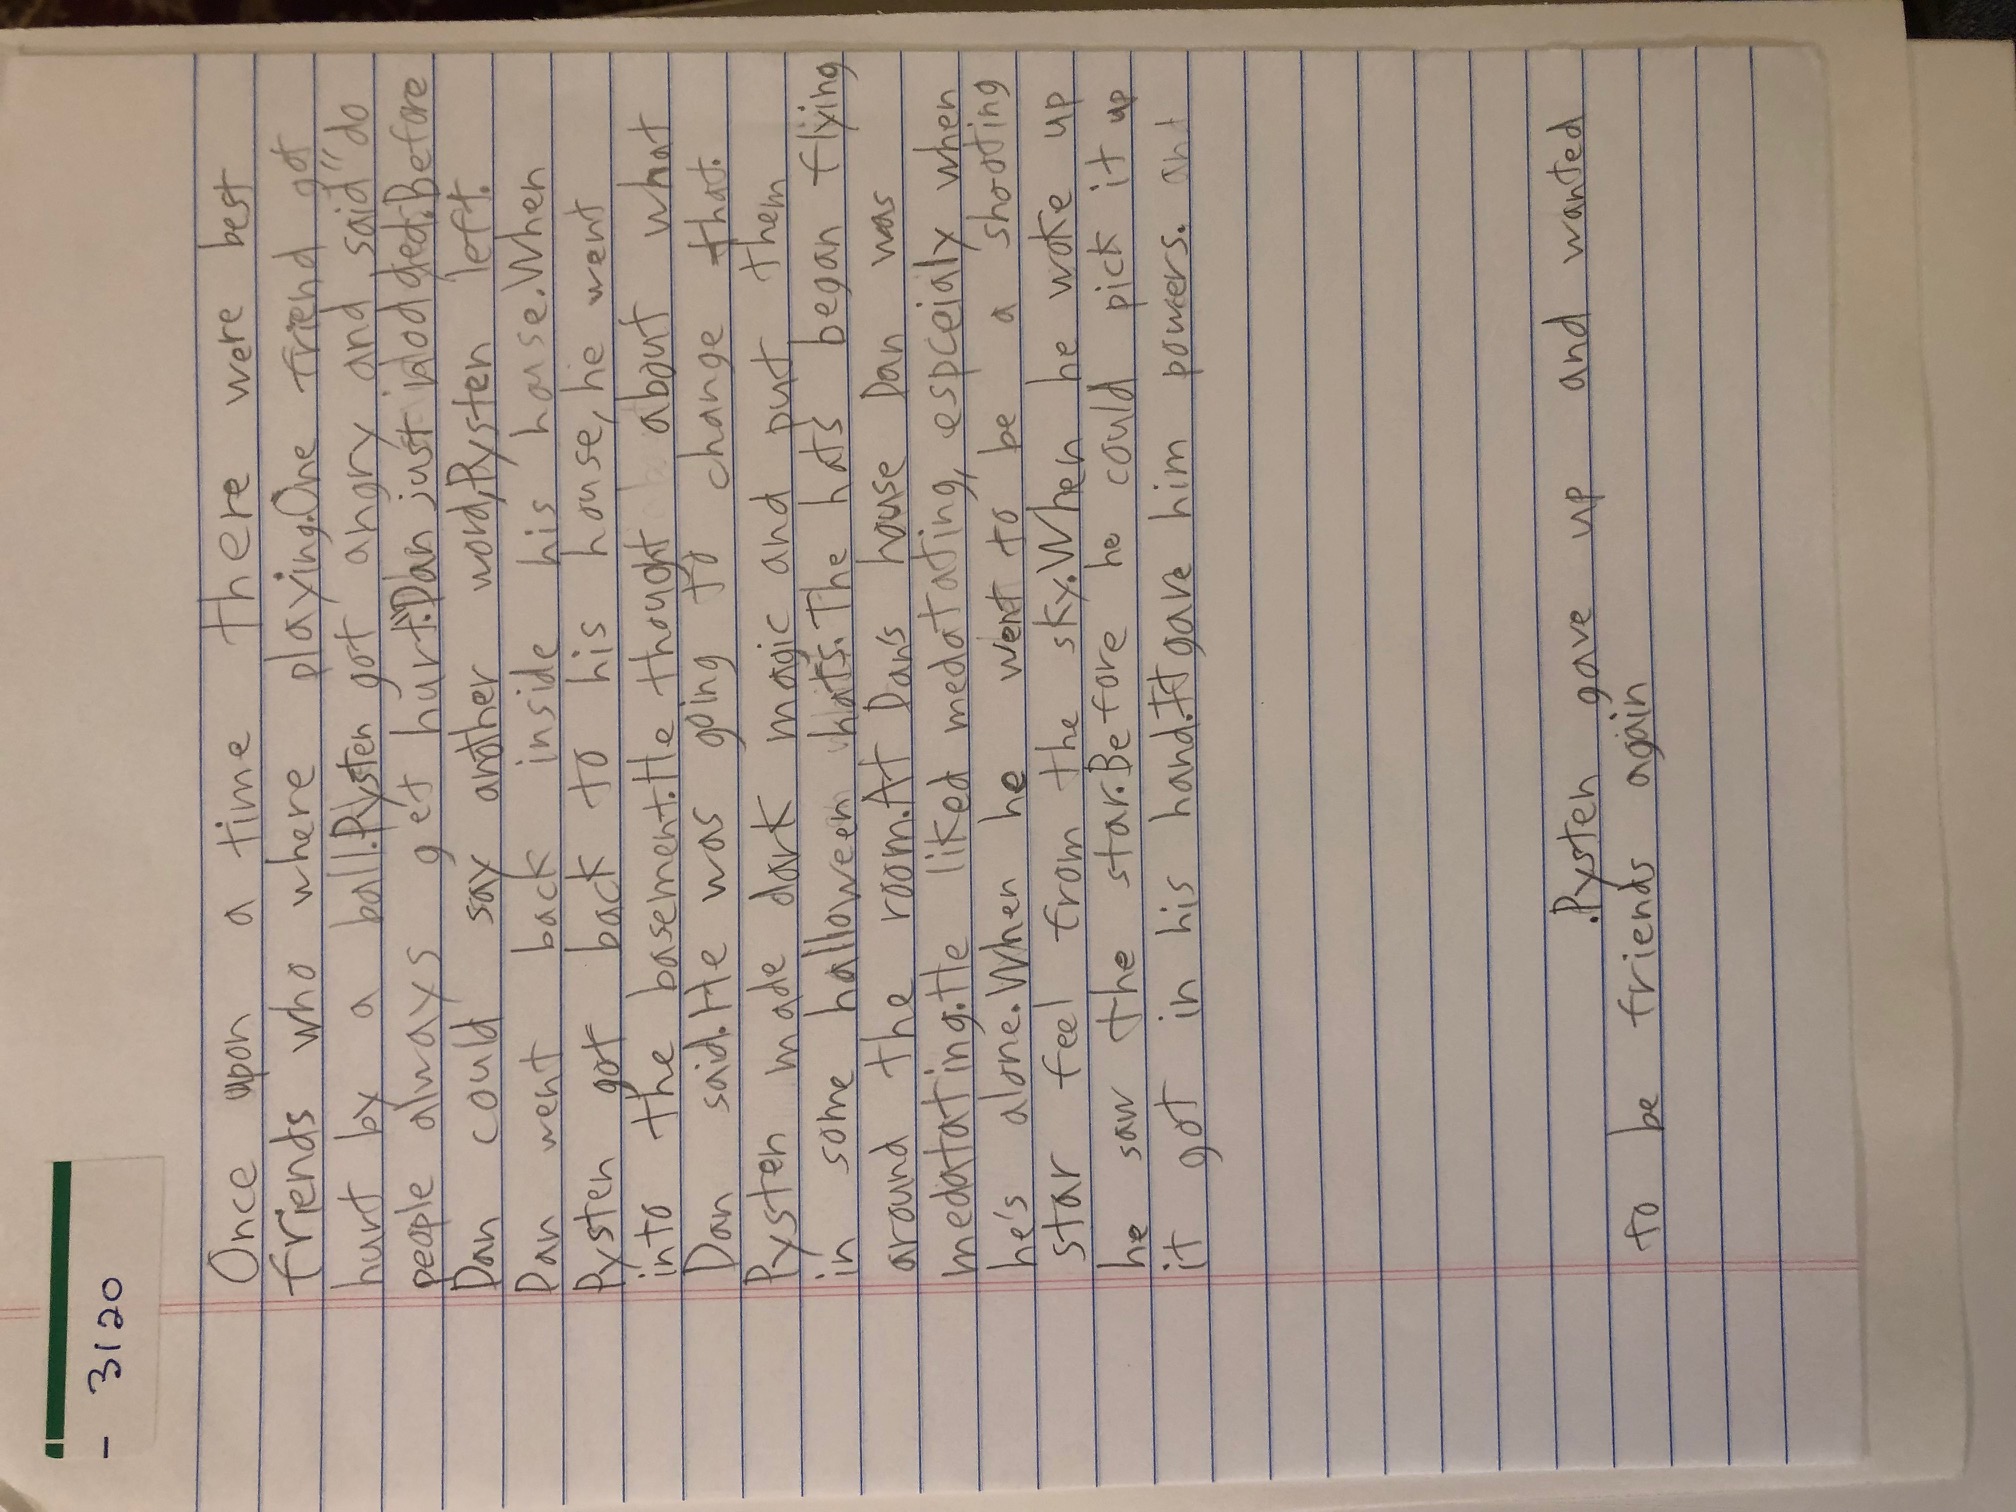 - 3120
Once upon a time there were best
friends who where playing.One friend got
hurt by a ball.Pysten got angry and said "do
people always get hurt."Dan just nodded.Before
Dan could say another word,Pysten left.
Dan went back inside his house.When
Pysten got back to his house, he went
into the basement.He thought about what
Dan said.He was going to change that.
Pysten made dark magic and put them
in some halloween hats.The hats began flying
around the room.At Dan's house Dan was
medatating.He liked medatating, espceialy when
he's alone.When he went to be a shooting
star feel from the sky.When he woke up
he saw the star.Before he could pick it up
it got in his hand.It gave him powers. and
.Pysten gave up and wanted
to be friends again